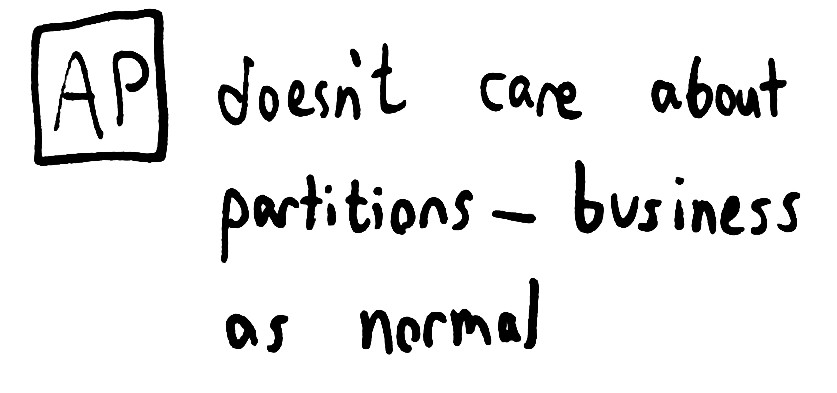 AP doesn't care about
partitions – business
as normal